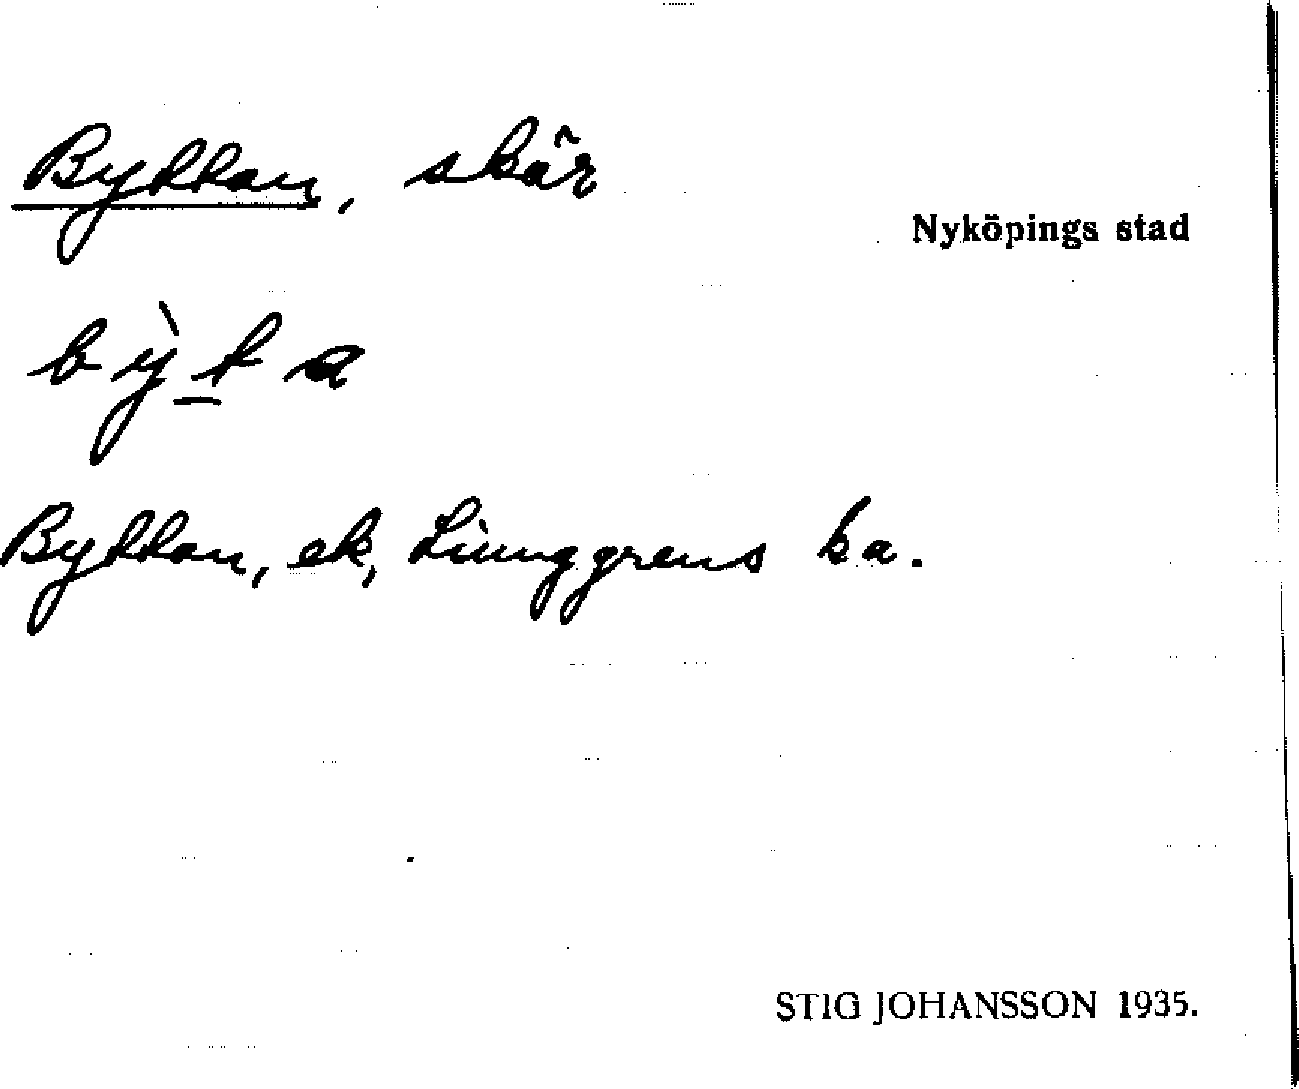 Byttan, skär
Nyköpings stad
bỳt a
Byttan, ek, Liunggrens ka.
STIG JOHANSSON 1935.